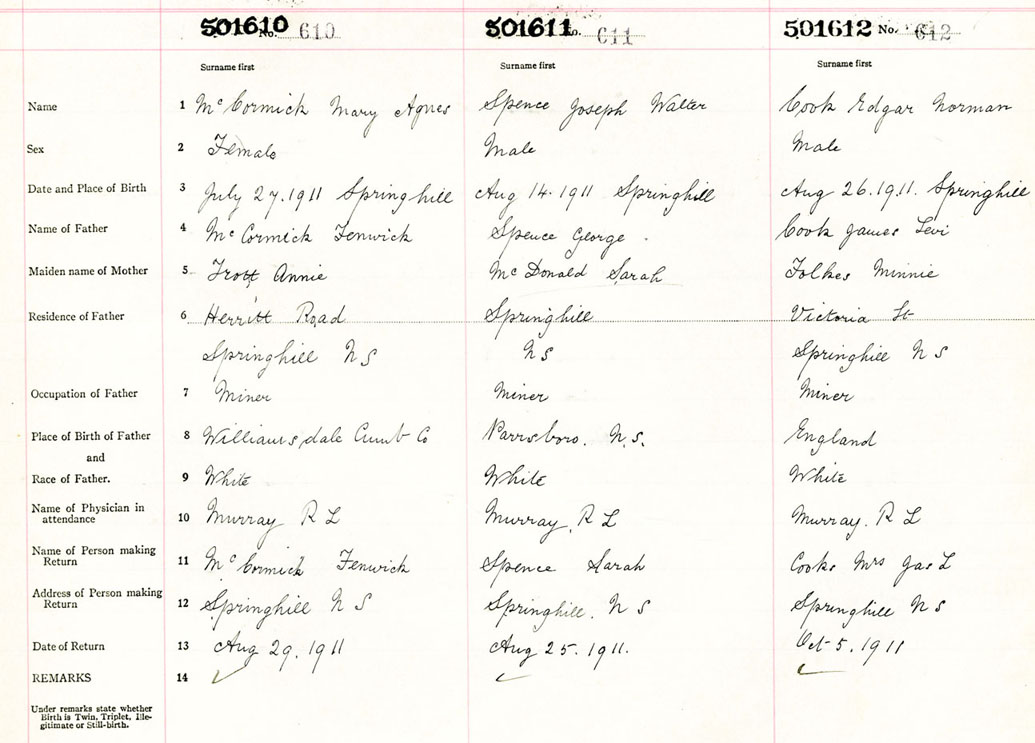 501610 No. 610 501611 No. 611 501612 No. 612
Surname first Surname first Surname first
Name 1 McCormick Mary Agnes Spence Joseph Walter Cook Edgar Norman
Sex 2 Female Male Male
Date and Place of Birth 3 July 27. 1911 Springhill Aug 14. 1911 Springhill Aug 26. 1911. Springhill
Name of Father 4 McCormick Fenwick Spence George. Cook James Levi
Maiden name of Mother 5 Trott Annie McDonald Sarah Folkes Minnie
Residence of Father 6 Herritt Road Springhill Victoria St
Springhill N S N S Springhill N S
Occupation of Father 7 Miner Miner Miner
Place of Birth of Father 8 Williamsdale Cumb Co Parrsboro. N.S. England
and
Race of Father. 9 White White White
Name of Physician in
attendance 10 Murray R L Murray. R L Murray. R L
Name of Person making
Return 11 McCormick Fenwick Spence Sarah Cooke Mrs Jas L
Address of Person making
Return 12 Springhill N S Springhill. N S Springhill N S
Date of Return 13 Aug 29. 1911 Aug 25. 1911. Oct 5. 1911
REMARKS 14 ✓ ✓ ✓
Under remarks state whether
Birth is Twin, Triplet, Ille-
gitimate or Still-birth.